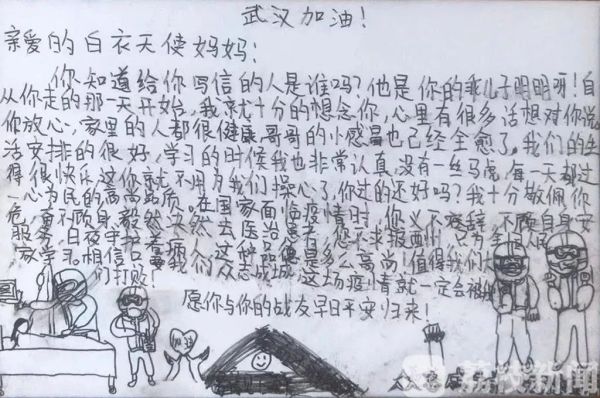 武汉加油!
亲爱的白衣天使妈妈:
你知道给你写信的人是谁吗?他是你的乖儿子明明呀!自
从你走的那一天开始,我就十分的想念你,心里有很多话想对你说
你放心,家里的人都很健康,哥哥的小感冒也已经全愈了。我们的生
活安排的很好,学习的时候我也非常认真,没有一丝马虎,每一天都过
得很快乐,这你就不用为我们操心了,你过的还好吗?我十分敬佩你
一心为民的高尚品质。在国家面临疫情时,你义不容辞,不顾自身安
危,奋不顾身,毅然决然去医治患者,您不求报酬,只为人民
服务,日夜守护着病人,这种品德是多么高尚!值得我们大
家学习。相信只要我们众志成城,这场疫情就一定会被我
们打败!
愿你与你的战友早日平安归来!
加油
荔枝新闻